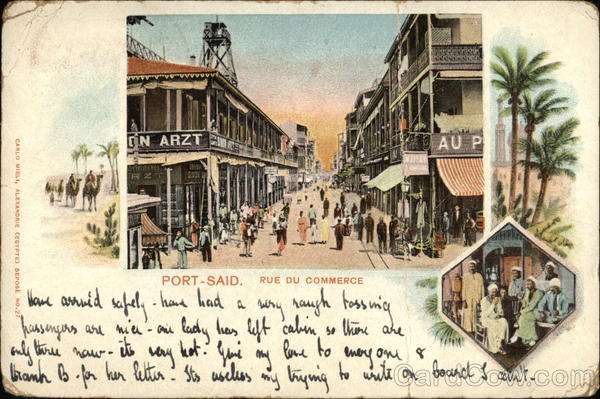 ON ARZT
AU P
PORT-SAID. RUE DU COMMERCE
CARLO MIELI, ALEXANDRIE (EGYPTE) DEPOSÉ NO. 27
Have arrived safely - have had a very rough tossing
passengers are nice - one lady has left cabin so there are
only three now - its very hot. Give my love to everyone &
thank B. for her letter. Its useless my trying to write on board I can't.
CardCow.com